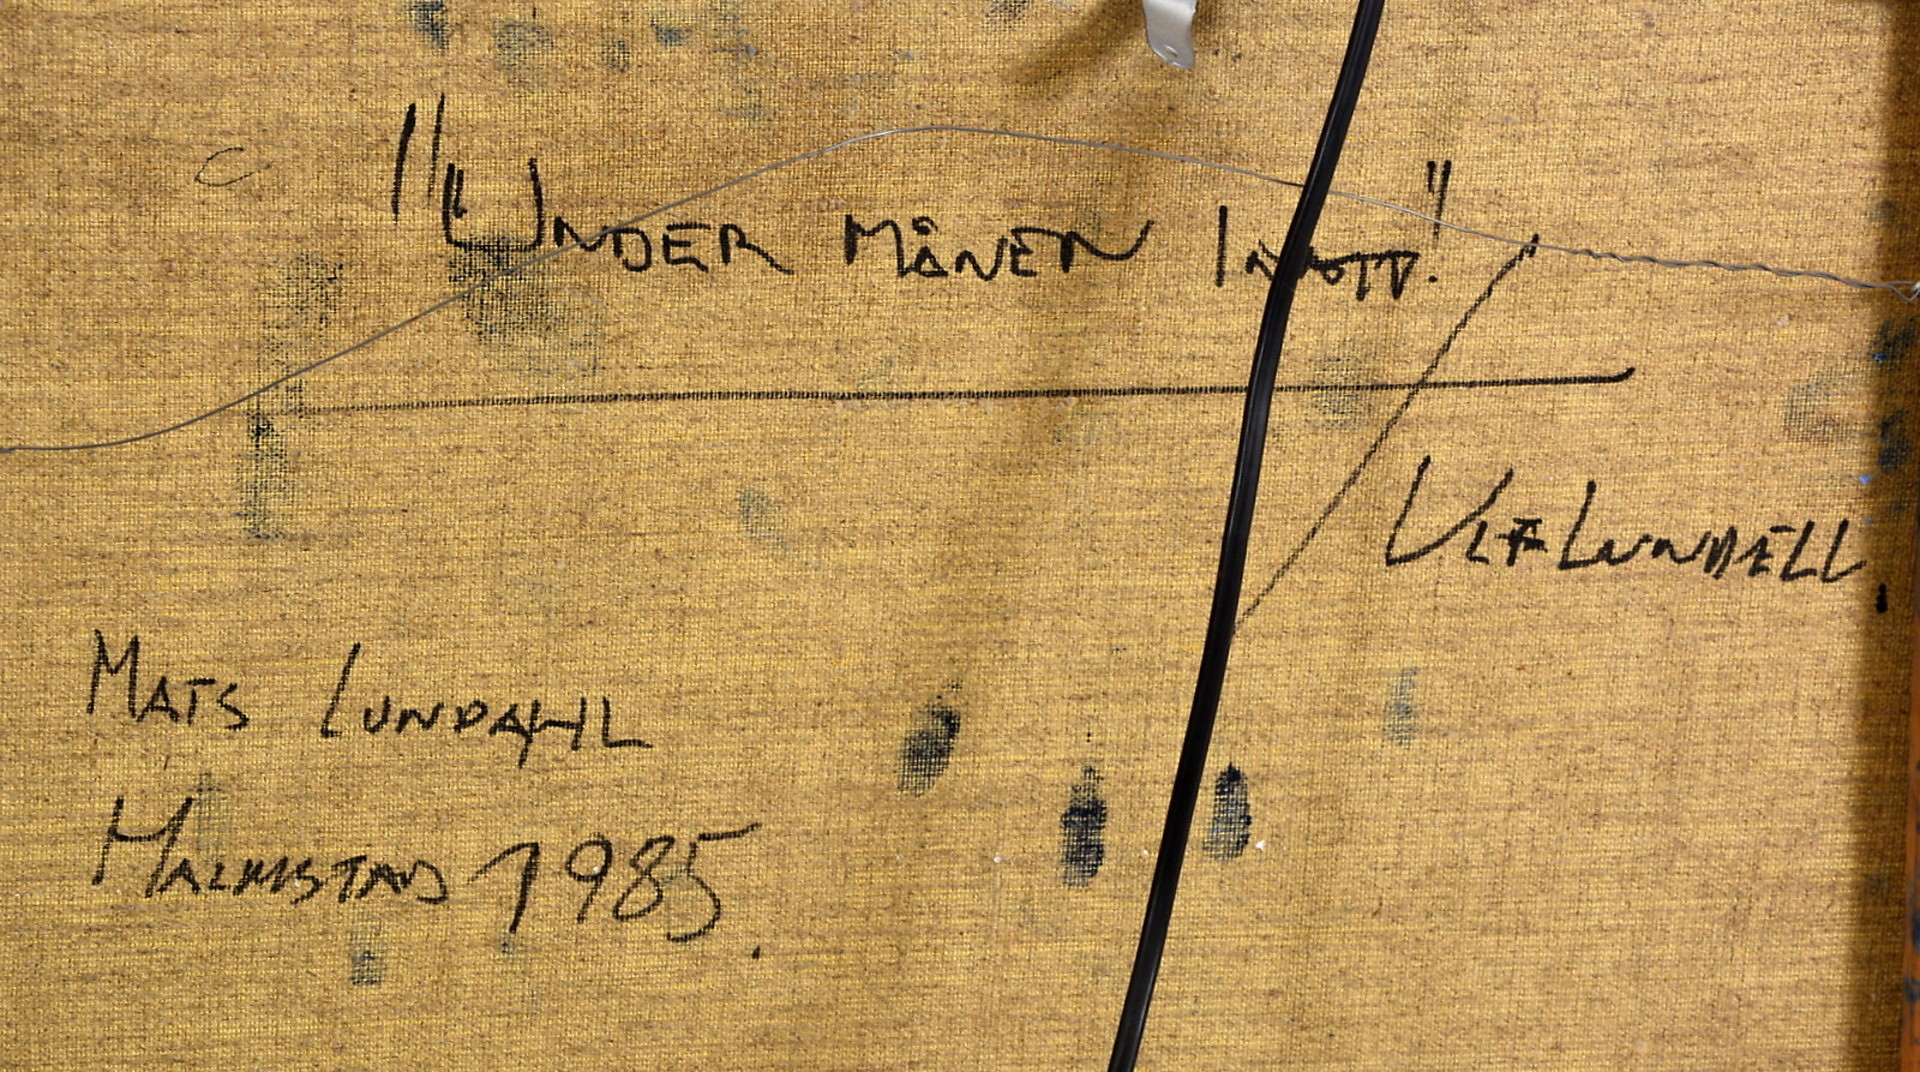 "UNDER MÅNEN INATT."
ULF LUNDELL.
MATS LUNDAHL
HALMSTAD 1985.